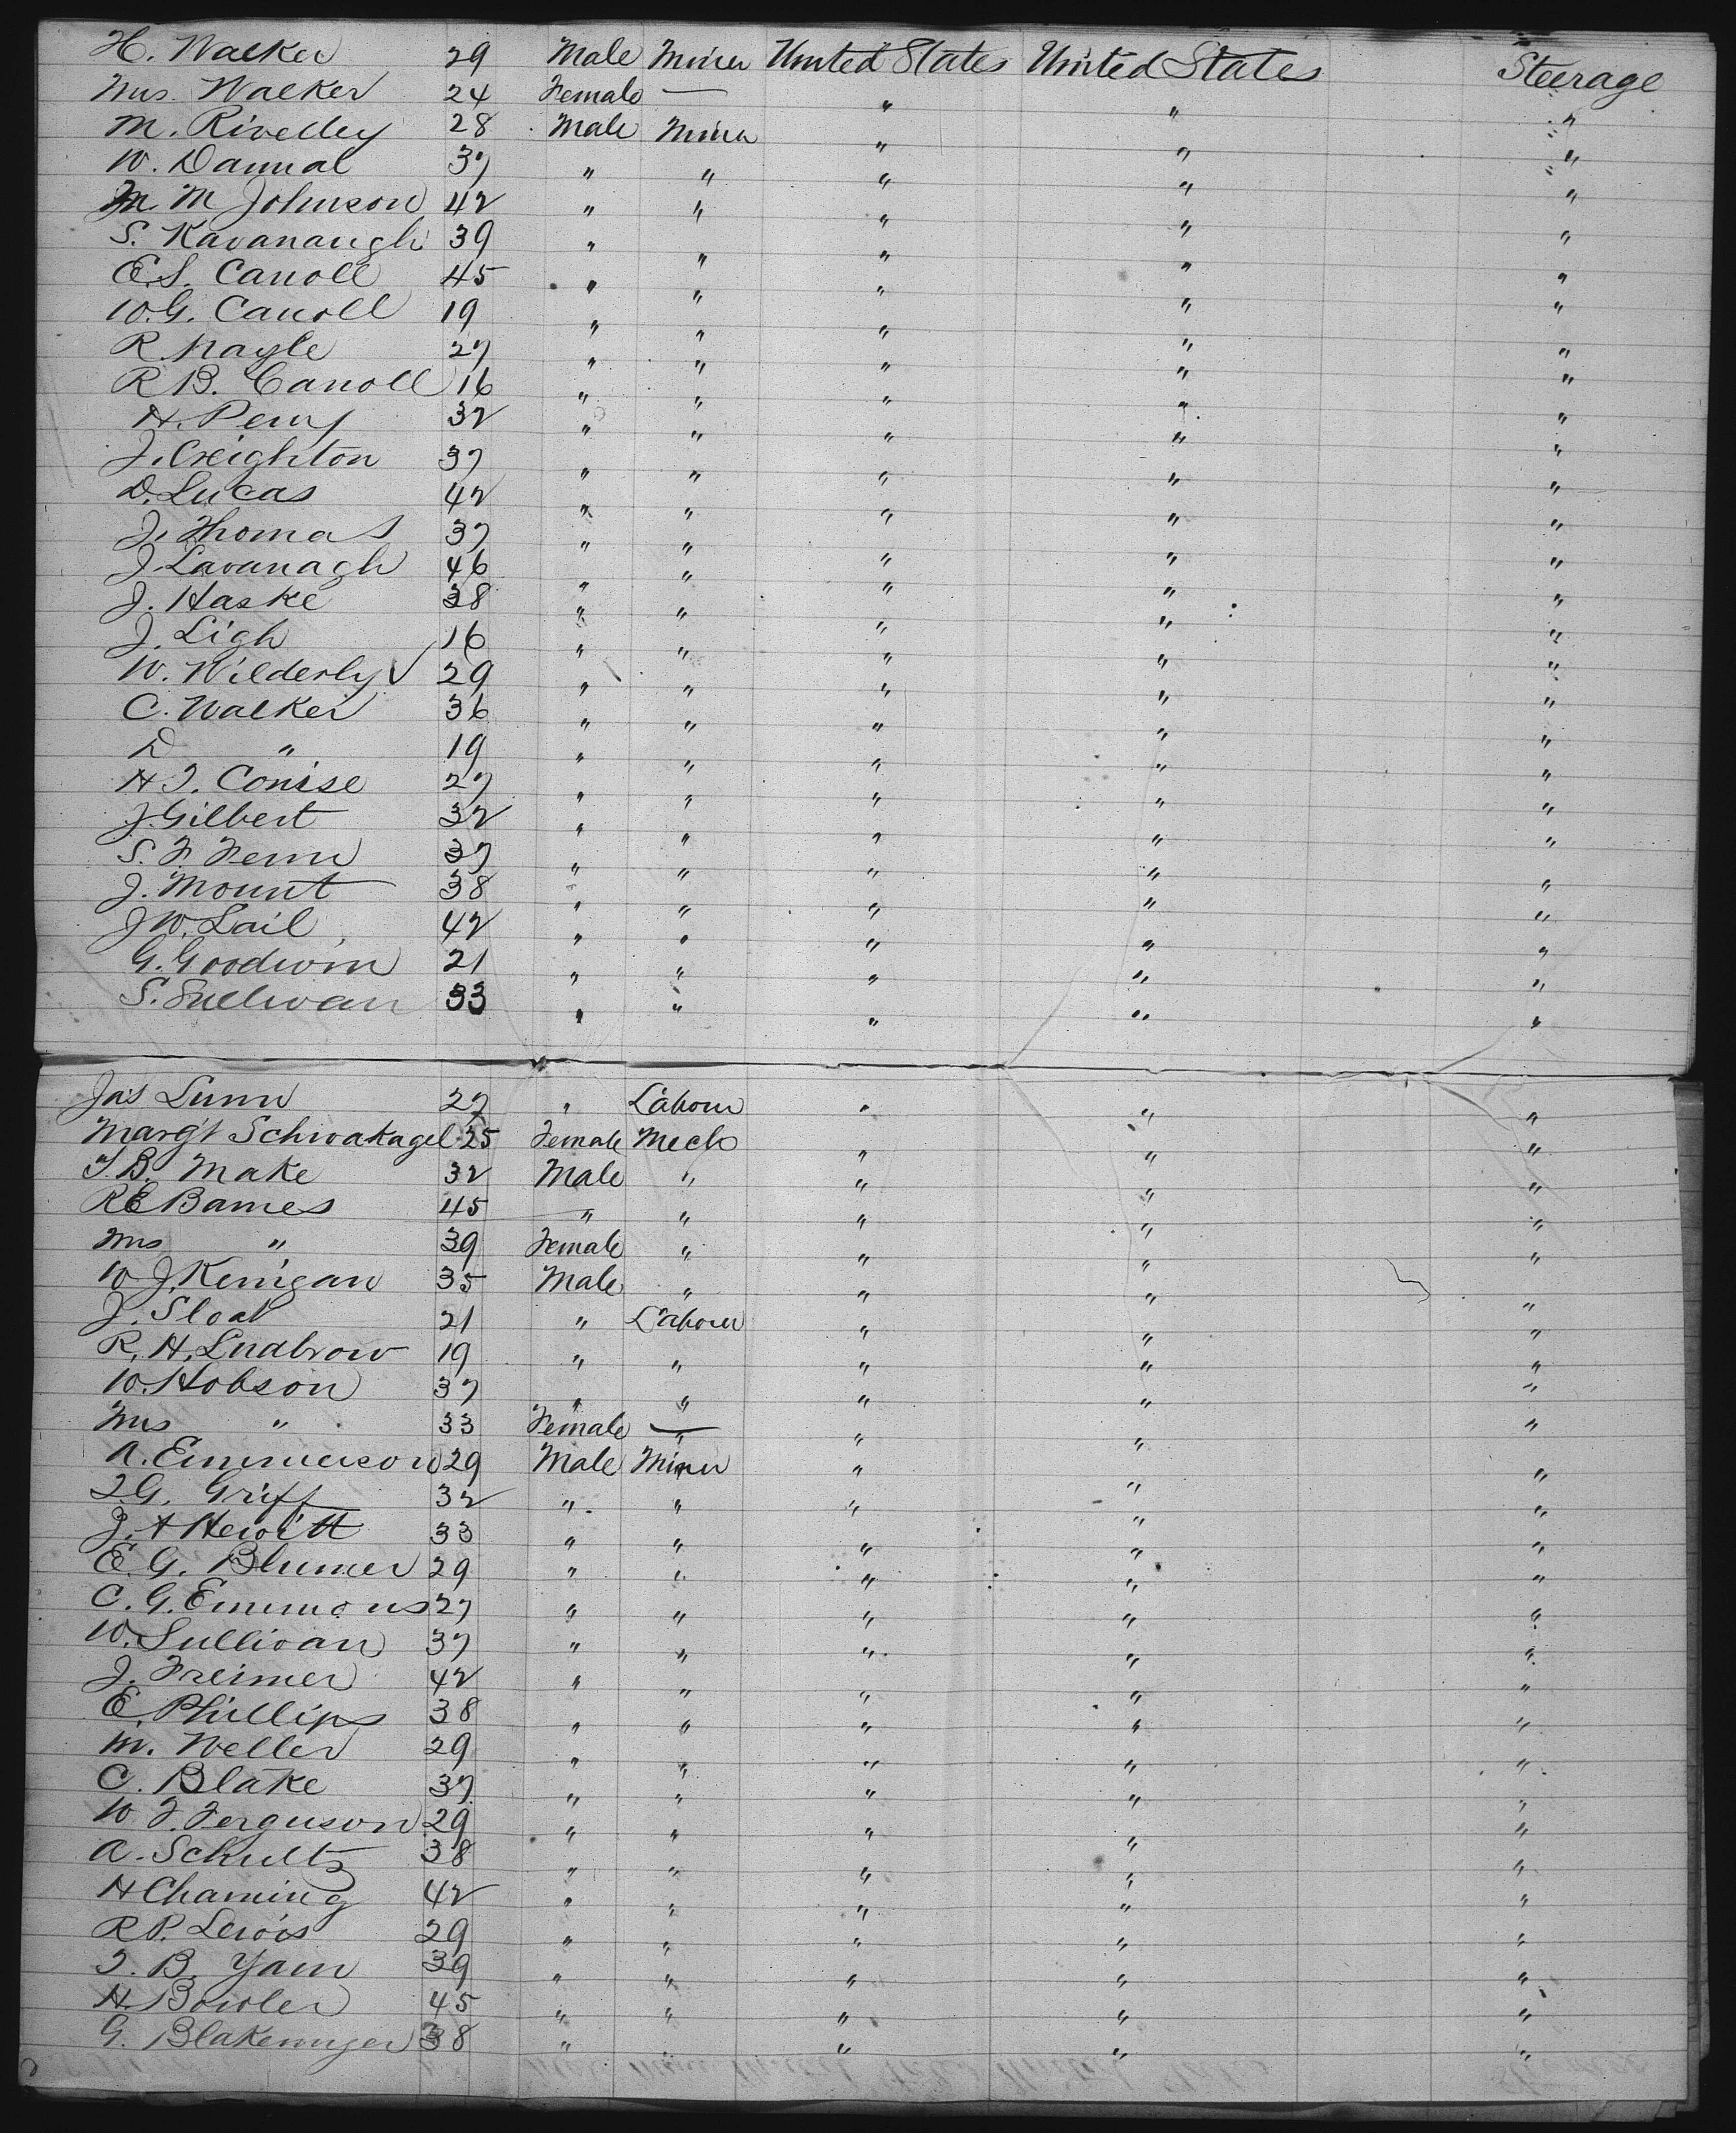 H. Walker 29 Male Miner United States United States Steerage
Mrs. Walker 24 Female — " " "
M. Rivelley 28 Male Miner " " "
W. Dannal 37 " " " " "
M. M Johnson 42 " " " " "
S. Kavanaugh 39 " " " " "
E.S. Carroll 45 " " " " "
W.G. Carroll 19 " " " " "
R. Nagle 27 " " " " "
R B. Carroll 16 " " " " "
H. Perry 32 " " " " "
J. Creighton 37 " " " " "
D. Lucas 42 " " " " "
J. Thomas 37 " " " " "
J. Lavanagh 46 " " " " "
J. Haske 38 " " " " "
J. Ligh 16 " " " " "
W. Wilderly 29 " " " " "
C. Walker 36 " " " " "
D " 19 " " " " "
H T. Conise 27 " " " " "
J. Gilbert 32 " " " " "
S. F. Fenn 37 " " " " "
J. Mount 38 " " " " "
J W. Lail 42 " " " " "
G. Goodwin 21 " " " " "
S. Sullivan 33 " " " " "
Jas Lunn 27 " Labour " " "
Margt Schwakagel 25 Female Mech " " "
T.B. Make 32 Male " " " "
R E Barnes 45 " " " " "
Mrs " 39 Female " " " "
W J. Kerrigan 35 Male " " " "
J. Sloat 21 " Labour " " "
R. H. Ludbrow 19 " " " " "
W. Hobson 37 " " " " "
Mrs " 33 Female — " " "
A. Emmerson 29 Male Miner " " "
T.G. Griff 32 " " " " "
J. A Hewitt 33 " " " " "
E. G. Blumer 29 " " " " "
C. G. Emmons 27 " " " " "
W. Sullivan 37 " " " " "
J. Freimer 42 " " " " "
E. Phillips 38 " " " " "
M. Weller 29 " " " " "
C. Blake 37 " " " " "
W F. Ferguson 29 " " " " "
A. Schultz 38 " " " " "
H Chaming 42 " " " " "
R P. Lewis 29 " " " " "
T. B. Yam 39 " " " " "
H. Bowler 45 " " " " "
G. Blakemyer 38 " " " " "